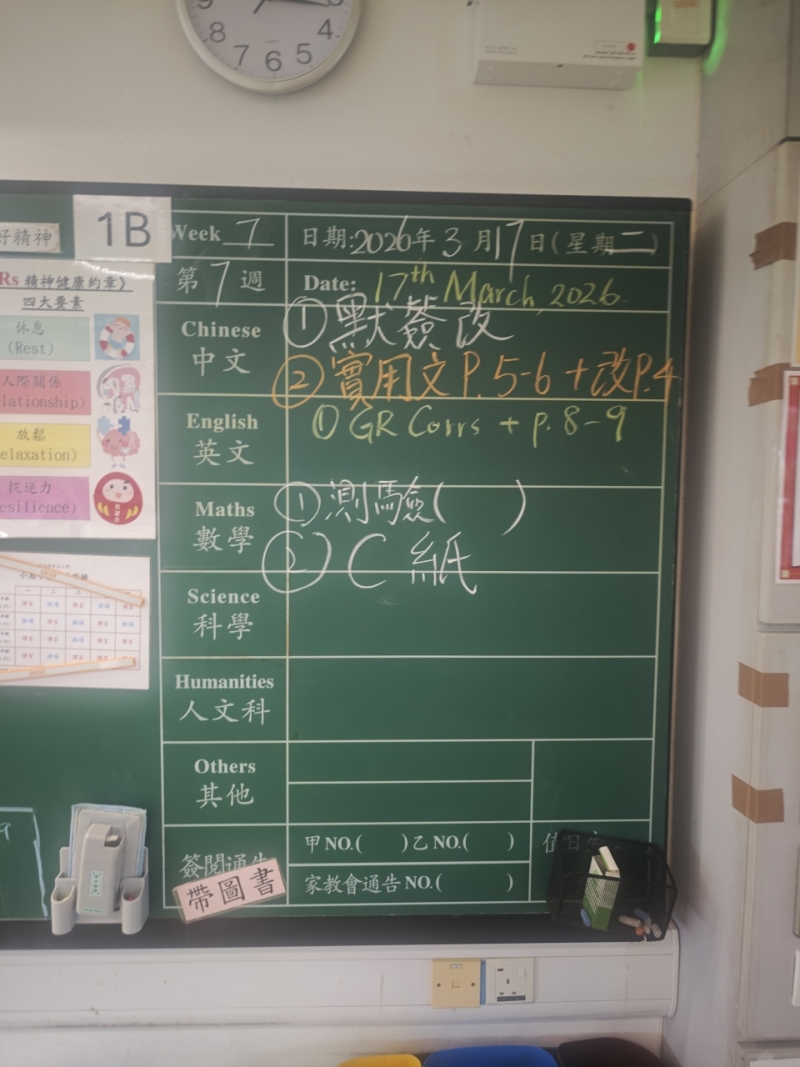 9 4 8 7 6 5
好精神
1B
Week 7
日期:2026年3月17日(星期二)
第7週
Date: 17th March, 2026
Rs 精神健康約章》
四大要素
休息
(Rest)
人際關係
elationship)
放鬆
elaxation)
抗逆力
esilience)
Chinese
中文
① 默簽改
② 實用文 P.5-6 + 改P.4
English
英文
① GR Corrs + p. 8-9
Maths
數學
① 測驗( )
② C 紙
Science
科學
Humanities
人文科
Others
其他
簽閱通告
甲 NO.( )乙 NO.( )
家教會通告 NO.( )
值日
帶圖書